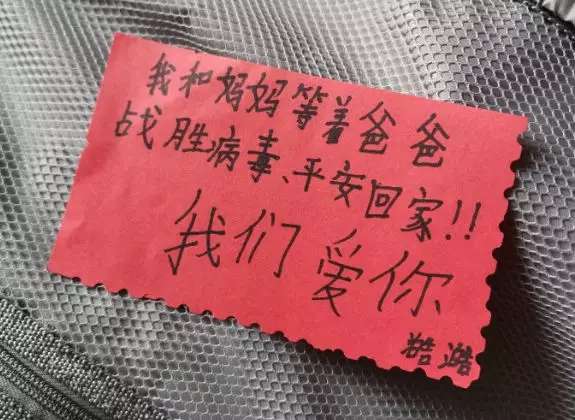 我和妈妈等着爸爸
战胜病毒、平安回家!!
我们爱你
皓澔